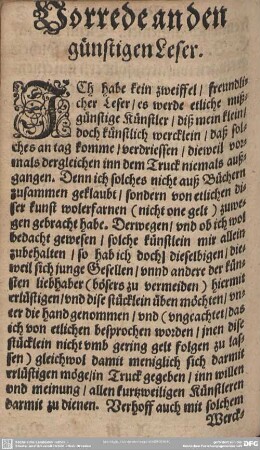 Vorrede an den
günstigen Leser.
ICh habe kein zweiffel / freundli-
cher Leser / es werde etliche miß-
günstige Künstler / diß mein klein /
doch künstlich wercklein / daß sol-
ches an tag komme / verdriessen / dieweil vor-
mals dergleichen inn dem Truck niemals auß-
gangen. Denn ich solches nicht auß Büchern
zusammen geklaubt / sondern von etlichen di-
ser kunst wolerfarnen (nicht one gelt) zuwe-
gen gebracht habe. Derwegen / vnd ob ich wol
bedacht gewesen / solche künstlein mir allein
zubehalten / so hab ich doch dieselbigen / die-
weil sich junge Gesellen / vnnd andere der kün-
sten liebhaber (bösers zu vermeiden) hiermit
erlüstigen / vnd dise stücklein üben möchten / vn-
ter die hand genommen / vnd (vngeachtet / das
ich von etlichen besprochen worden / jnen dise
stücklein nicht vmb gering gelt folgen zu las-
sen) gleichwol damit meniglich sich darmit
erlüstigen möge / in Truck gegeben / inn willen
vnd meinung / allen kurtzweiligen Künstleren
darmit zu dienen. Verhoff auch mit solchem
Werck-